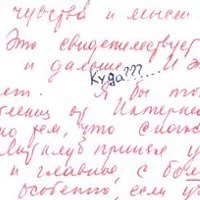 чувства и мысли
Это свидетельствует
и дальше И э
Куда???
ет. Я бы то
от Интернет
но тем, что с
клуб принёс у
и главное, с бо
особенно, если у